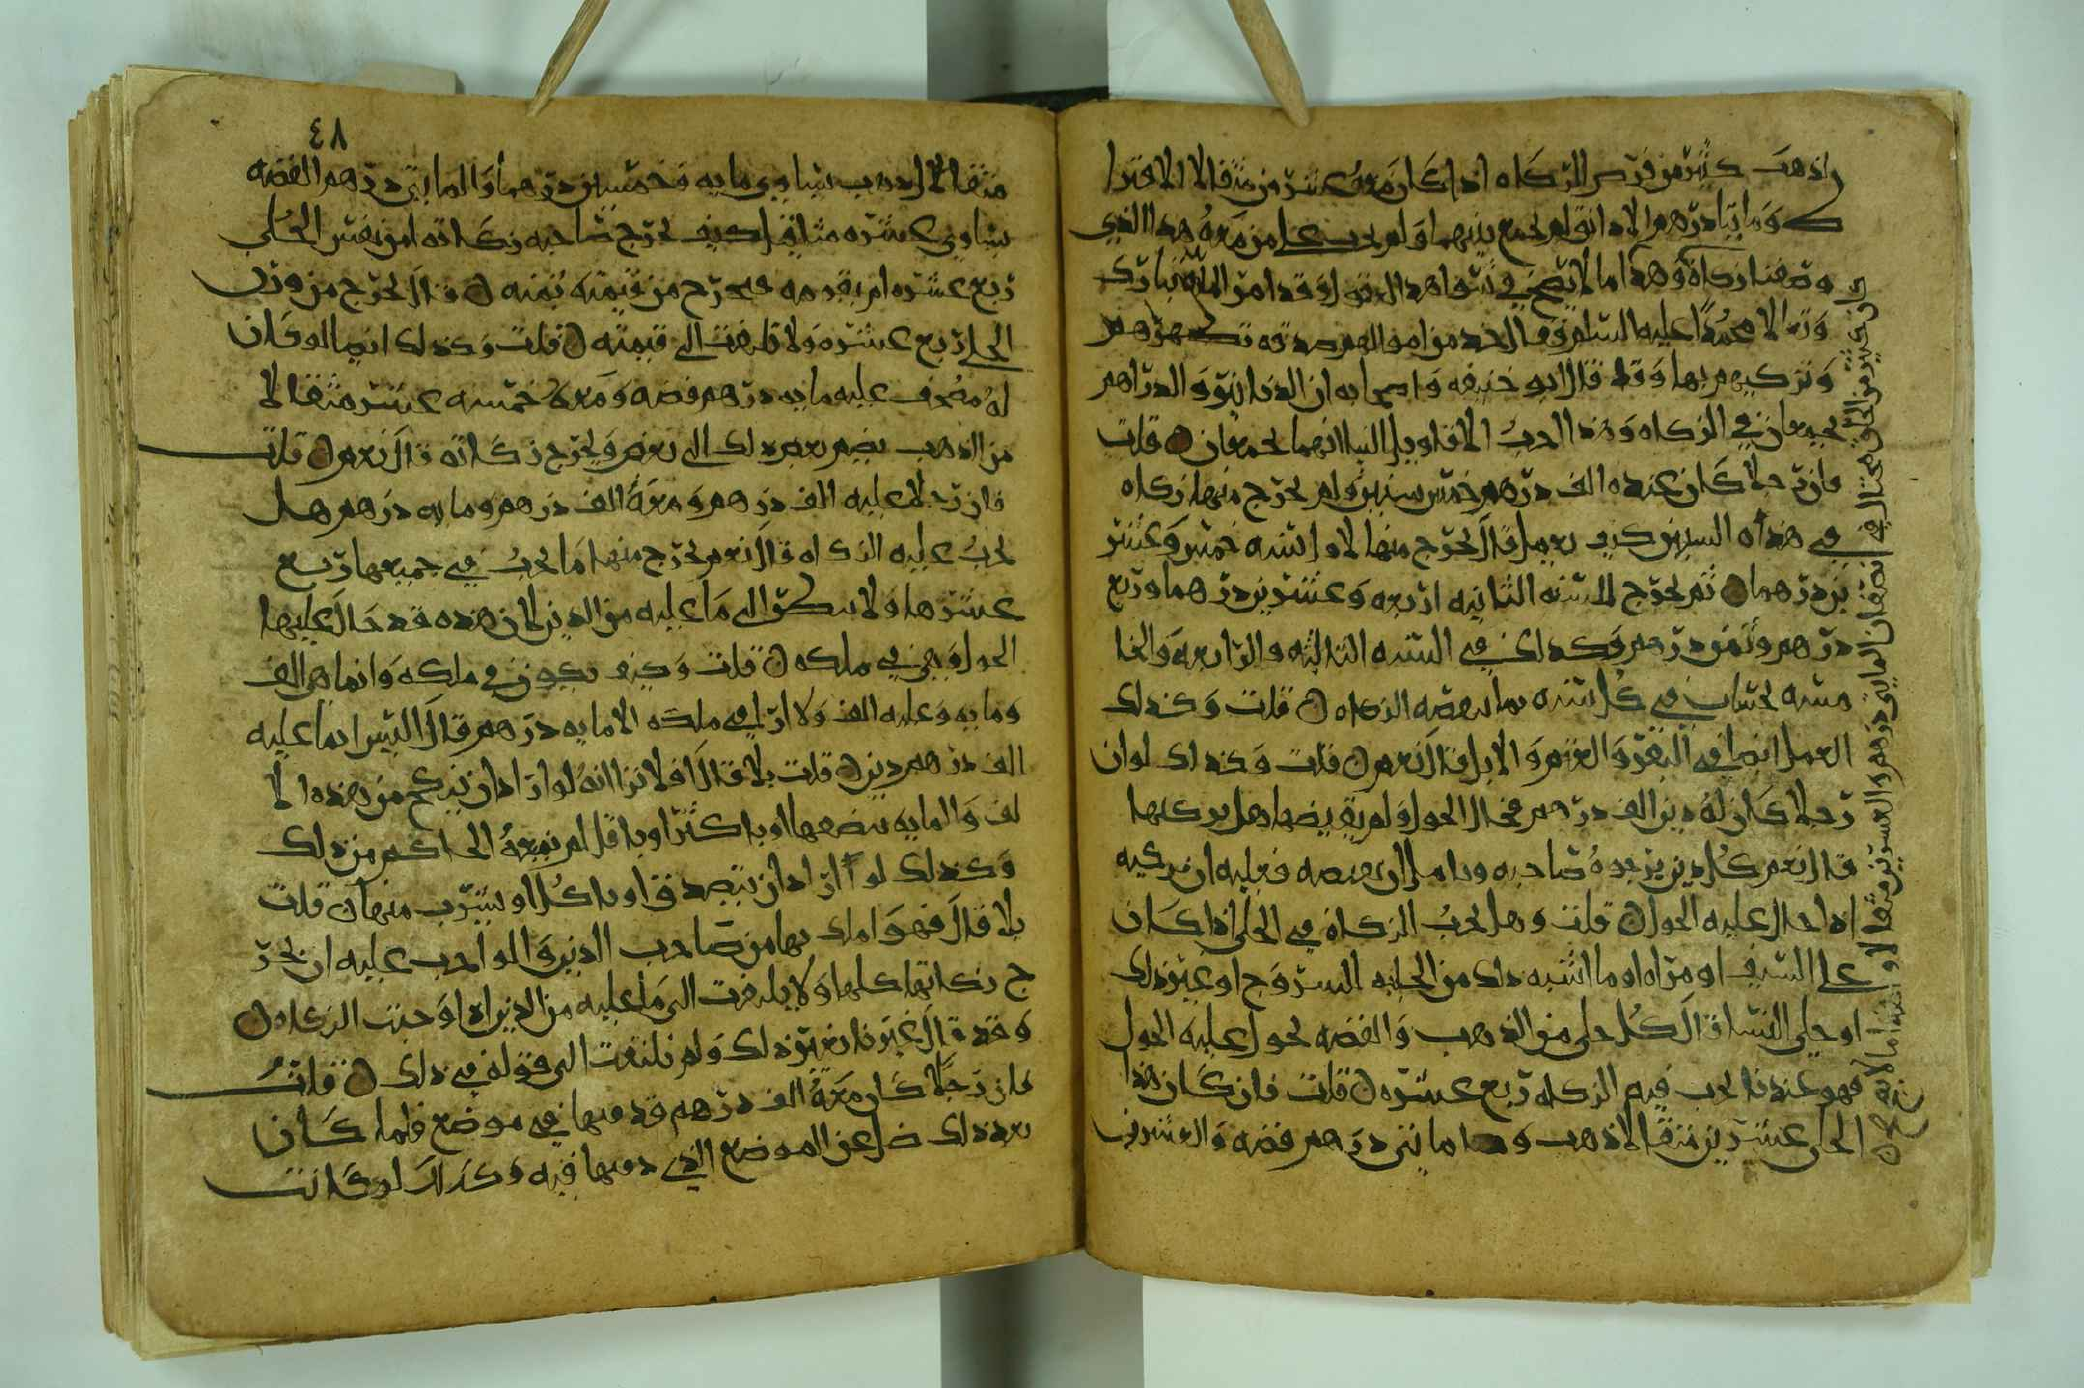 واذهب كثير من فرض الزكاه اذا كان معه عشرين مثقالا الا قيراط
ومايتا درهم الا دانق لم يجمع بينهما ولم يجب على من معه هذا الذي
وصفنا زكاة وهذا ما لا يصح في شواهد العقول وقد امر الله تبارك
وتعالا محمدا عليه السلم فقال خذ من اموالهم صدقه تطهرهم
وتزكيهم بها وقد قال ابو حنيفه واصحابه ان الدنانير والدراهم
يجمعان في الزكاه وهذا احب الاقاويل الينا انهما يجمعان قلت
فان رجلا كان عنده الف درهم خمس سنين ولم يخرج منها زكاه
في هذه السنين كيف يعمل قال يخرج منها لاول سنه خمس وعشر
ين درهما ثم يخرج للسنه الثانيه اربعه وعشرين درهما وربع
درهم وثمن درهم وكذلك في السنه الثالثه والرابعه والخا
مسه بحساب في كل سنه بما نقصه الزكاه قلت وكذلك
العمل ايضا في البقر والغنم والابل قال نعم قلت وكذلك لو ان
رجلا كان له دين الف درهم فحال الحول ولم يقبضها هل يزكيها
قال نعم كل دين يرجوه صاحبه ويامل ان يقبضه فعليه ان يزكيه
اذا حال عليه الحول قلت وهل تجب الزكاة في الحلي اذا كان
على السيف او مراه او ما اشبه ذلك من الحليه للسروج او غير ذلك
او حلي النسا قال كل حلي من الذهب والفضه يحول عليه الحول
فهو عندنا يجب فيه الزكاه ربع عشره قلت فان كان هذا
الحلي عشرين مثقالا ذهب و مايتي درهم فضه والعشرون
٤٨
مثقالا الذهب يساوي مايه وخمسين درهما والمايتي درهم الفضه
يساوي عشره مثاقيل كيف يخرج صاحبه زكاته امن نفس الحلي
ربع عشره ام يقومه فيخرج من قيمته ثمنه قال يخرج من وزن
الحلي ربع عشره ولا يلتفت الى قيمته قلت وكذلك ايضا لو كان
له مصحف عليه مايه درهم فضه ومعه خمسه عشر مثقالا
من الذهب يضم بعض ذلك الى بعض ويخرج زكاته قال نعم قلت
فان رجلا عليه الف درهم ومعه الف درهم ومايه درهم هل
يجب عليه الزكاه قال نعم يخرج منها ما يجب في جميعها ربع
عشرها ولا ينظر الى ما عليه من الدين لان هذه قد حال عليها
الحول وهي في ملكه قلت وكيف يكون في ملكه وانما هي الف
ومايه وعليه الف ولا ارا في ملكه الا مايه درهم قال اليس انما عليه
الف درهم دين قلت بلا قال افلا ترا انه لو اراد ان ينكح من هذه الا
لف والمايه ببضعها او باكثر او باقل لم يمنعه الحاكم من ذلك
وكذلك لو اراد ان يتصدق او ياكل او يشرب منها قلت
بلا قال فهو املك بها من صاحب الدين والواجب عليه ان يخر
ج زكاتها كلها ولا يلتفت الى ما عليه من الدين اذا وجبت الزكاه
وقد قال غيرنا بغير ذلك ولم نلتفت الى قوله في ذلك قلت
فان رجلا كان معه الف درهم قد دفنها في موضع فلما كان
بعد ذلك ضل عن الموضع الذي دفنها فيه وكذلك لو كانت